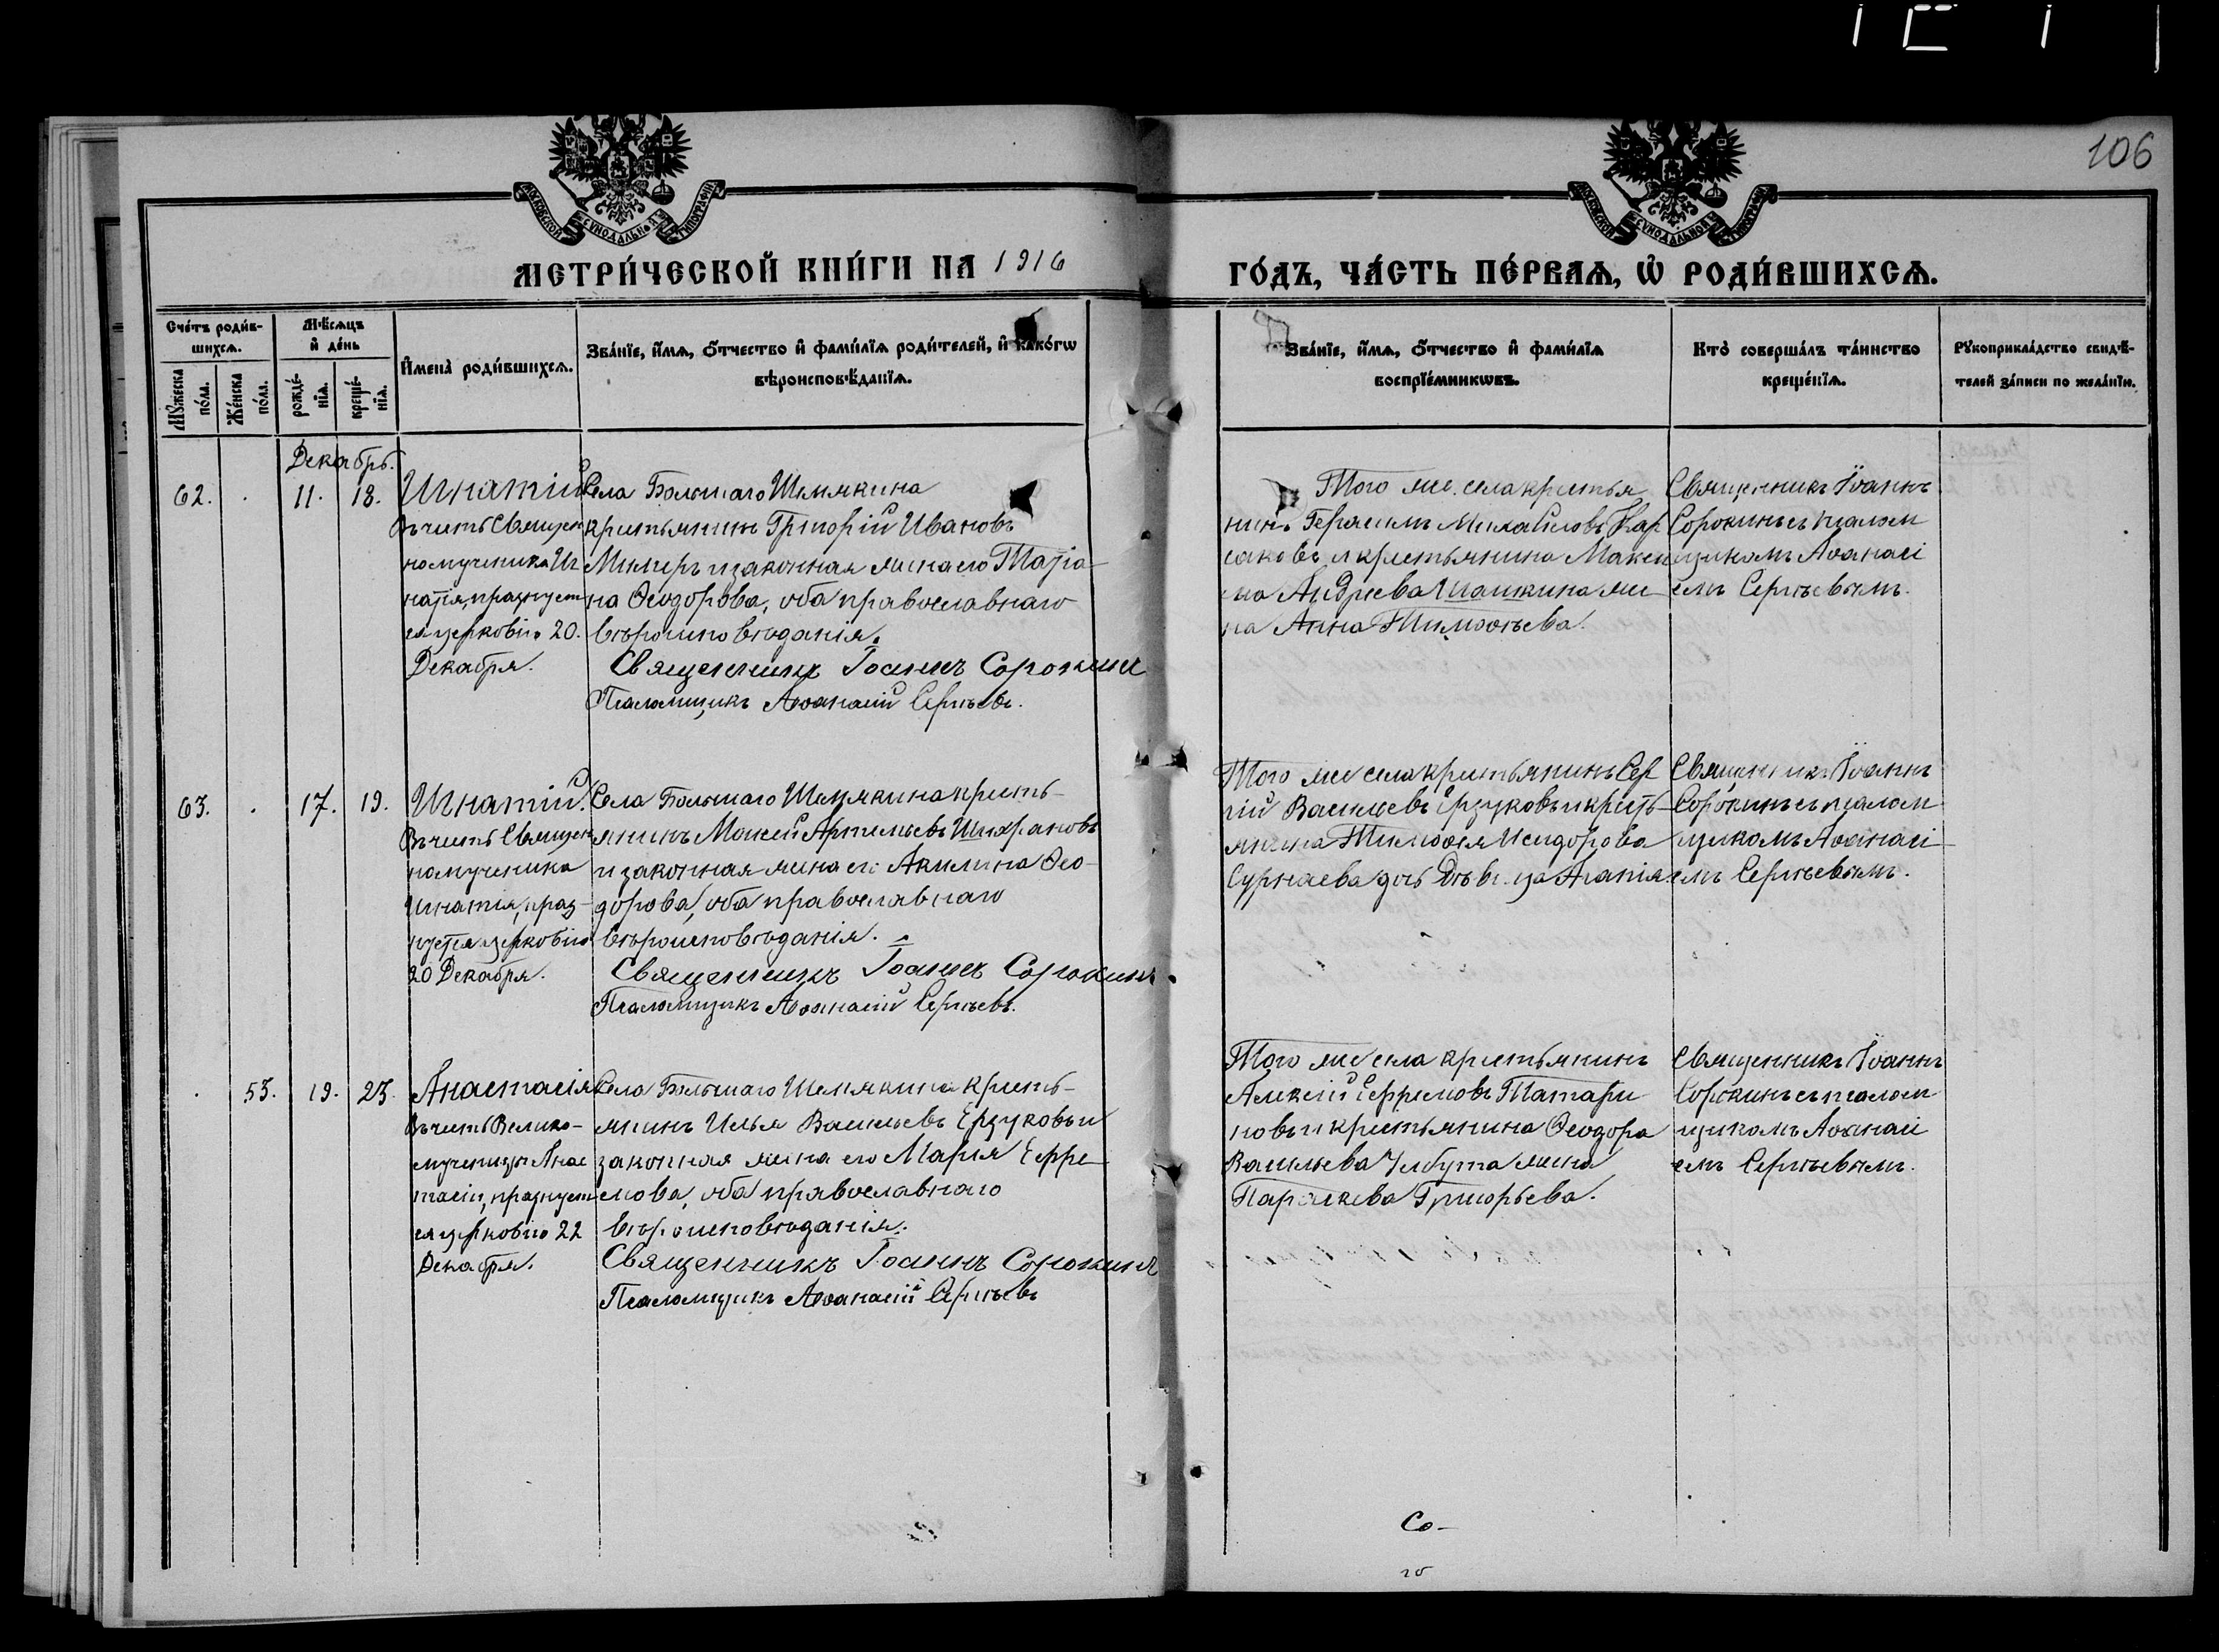 106
МОСКОВСКОЙ СѴНОДАЛЬНОЙ ТИПОГРАФІИ
МОСКОВСКОЙ СѴНОДАЛЬНОЙ ТИПОГРАФІИ
МЕТРИ́ЧЕСКОЙ КНИ́ГИ НА 1916 ГО́ДЪ, ЧА́СТЬ ПЕ́РВАѦ, Ѡ҆ РОДИ́ВШИХСѦ.
Сче́тъ роди́в-
шихсѧ.
Мꙋ́жеска по́ла.
Же́нска по́ла.
Мѣ́сѧцъ и҆ де́нь
рожде́-нїѧ.
креще́-нїѧ.
И҆мена̀ роди́вшихсѧ.
Зва́нїе, и҆́мѧ, ѻ҆́тчество и҆ фами́лїѧ роди́телей, и҆ како́гѡ
вѣроисповѣ́данїѧ.
Зва́нїе, и҆́мѧ, ѻ҆́тчество и҆ фами́лїѧ
воспрїе́мникѡвъ.
Кто̀ соверша́лъ та́инство
креще́нїѧ.
Рꙋкоприкла́дство свидѣ́-
телей за́писи по жела́нїю.
Декабрь.
62. . 11. 18.
Игнатій
Въ честь Священ
номученика Иг
натія, празнует
ся церковію 20.
Декабря.
Села Большаго Шемякина
крестьянинъ Григорій Ивановъ
и законная жена его Татіа-
на Ѳеодорова, оба православнаго
вѣроисповѣданія.
Священникъ Іоаннъ Сорокин
Псаломщикъ Аѳанасій Сергѣевъ.
Того же села крестья
нинъ Герасимъ Михайловъ Кар
саковъ и крестьянина Макси
ма Андреева Шашкина же
на Анна Тимоѳѣева.
Священникъ Іоаннъ
Сорокинъ съ псалом
щикомъ Аѳанасі
емъ Сергѣевымъ.
63. . 17. 19.
Игнатій.
Въ честь Священ
номученика
Игнатія, праз-
нуется церковію
20 Декабря.
Села Большаго Шемякина кресть-
янинъ Моисей Артемьевъ Шихрановъ
и законная жена его Акилина Ѳео-
дорова, оба православнаго
вѣроисповѣданія.
Священникъ Іоаннъ Сорокинъ
Псаломщикъ Аѳанасій Сергѣевъ.
Того же села крестьянинъ Сер
гій Васильевъ Ерзуковъ и кресть-
янина Тимоѳея Исидорова
Сурнаева дочь Дѣвица Агапія.
Священникъ Іоаннъ
Сорокинъ съ псалом
щикомъ Аѳанасі-
емъ Сергѣевымъ.
. 53. 19. 23.
Анастасія
Въ честь Велико-
мученицы Анас
тасіи, празнует
ся церковію 22
Декабря.
Села Большаго Шемякина кресть-
янинъ Илья Васильевъ Ерзуковъ и
законная жена его Марія Ефре-
мова, оба православнаго
вѣроисповѣданія.
Священникъ Іоаннъ Сорокинъ
Псаломщикъ Аѳанасій Сергѣевъ
Того же села крестьянинъ
Алексій Ефремовъ Татари
новъ и крестьянина Ѳеодора
Васильева Улбута жена
Параскева Григорьева.
Священникъ Іоаннъ
Сорокинъ съ псалом
щикомъ Аѳанасі
емъ Сергѣевымъ.
Со-